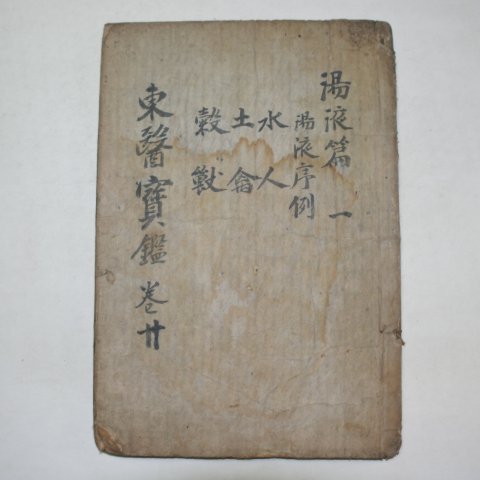 湯液篇 一
湯液序例
水人
土禽
穀獸
東醫寶鑑 卷廿